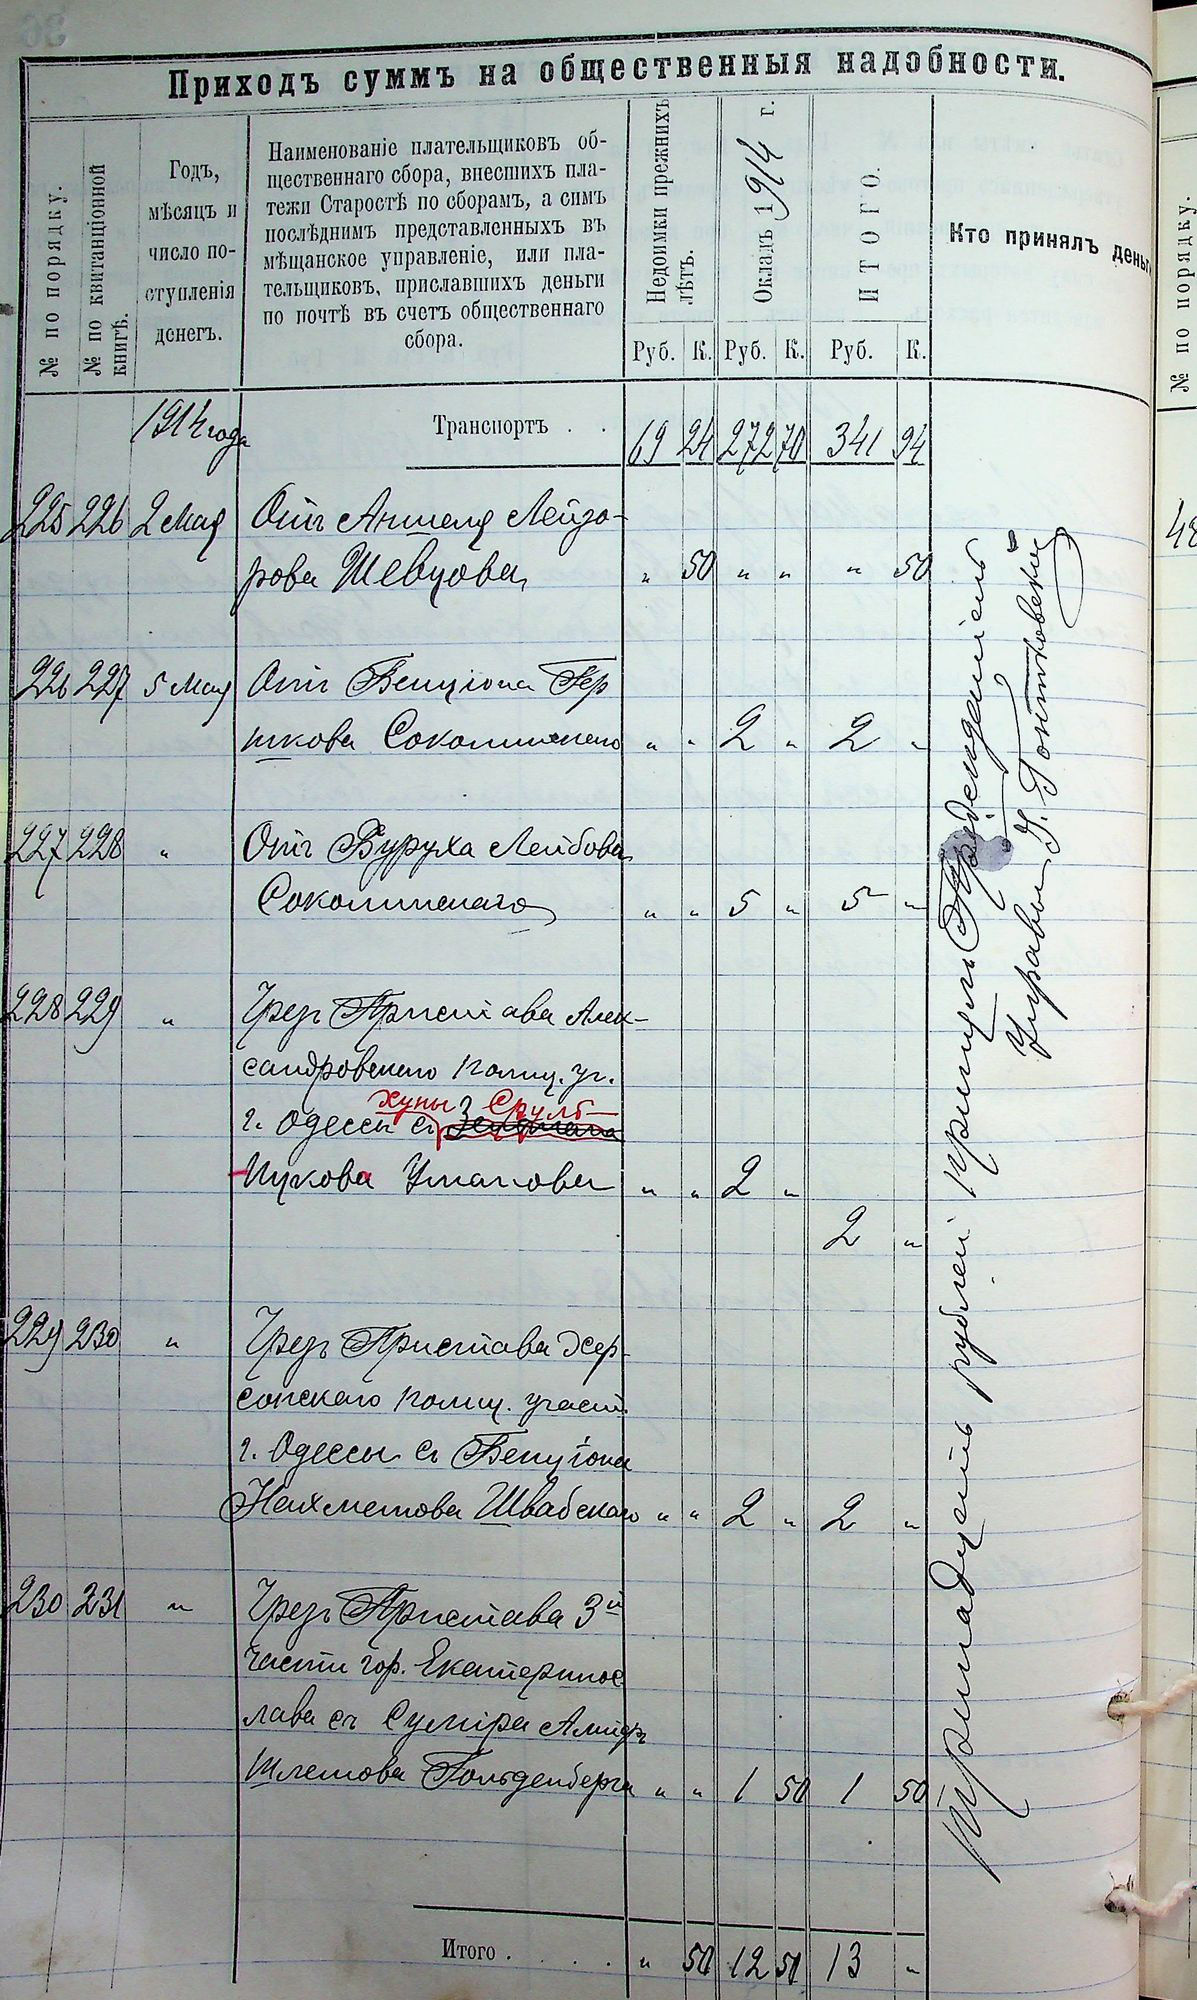 Приходъ суммъ на общественныя надобности.
№ по порядку.
№ по квитанціонной книгѣ.
Годъ,
мѣсяцъ и
число по-
ступленія
денегъ.
Наименованіе плательщиковъ об-
щественнаго сбора, внесшихъ пла-
тежи Старостѣ по сборамъ, а симъ
послѣднимъ представленныхъ въ
мѣщанское управленіе, или пла-
тельщиковъ, приславшихъ деньги
по почтѣ въ счетъ общественнаго
сбора.
Недоимки прежнихъ лѣтъ.
Окладъ 1914 г.
ИТОГО.
Кто принялъ деньг
Руб. К. Руб. К. Руб. К.
1914 года Транспортъ . . 69 24 272 70 341 94
225 226 2 Мая Отъ Аншеля Лейзо-
рова Шевцова " 50 " " " 50
226 227 5 Мая Отъ Бенціона Гер
шкова Соколинскаго " " 2 " 2 "
227 228 " Отъ Буруха Лейбова
Соколинскаго " " 5 " 5 "
228 229 " Чрезъ Пристава Алек-
сандровскаго полиц. уч.
Сруль
г. Одессы съ
Ицкова Уманова " " 2 "
2 "
229 230 " Чрезъ Пристава Хер-
сонскаго полиц. участ.
г. Одессы съ Бенціона
Нахметова Швабскаго " " 2 " 2 "
230 231 " Чрезъ Пристава 3й
части гор. Екатеринос
лава съ
Шлемова Гольденберга " " 1 50 1 50
Итого . . . . . " 50 12 50 13 "
Тринадцать рублей принялъ Предсѣдатель
Управы
№ по порядку.